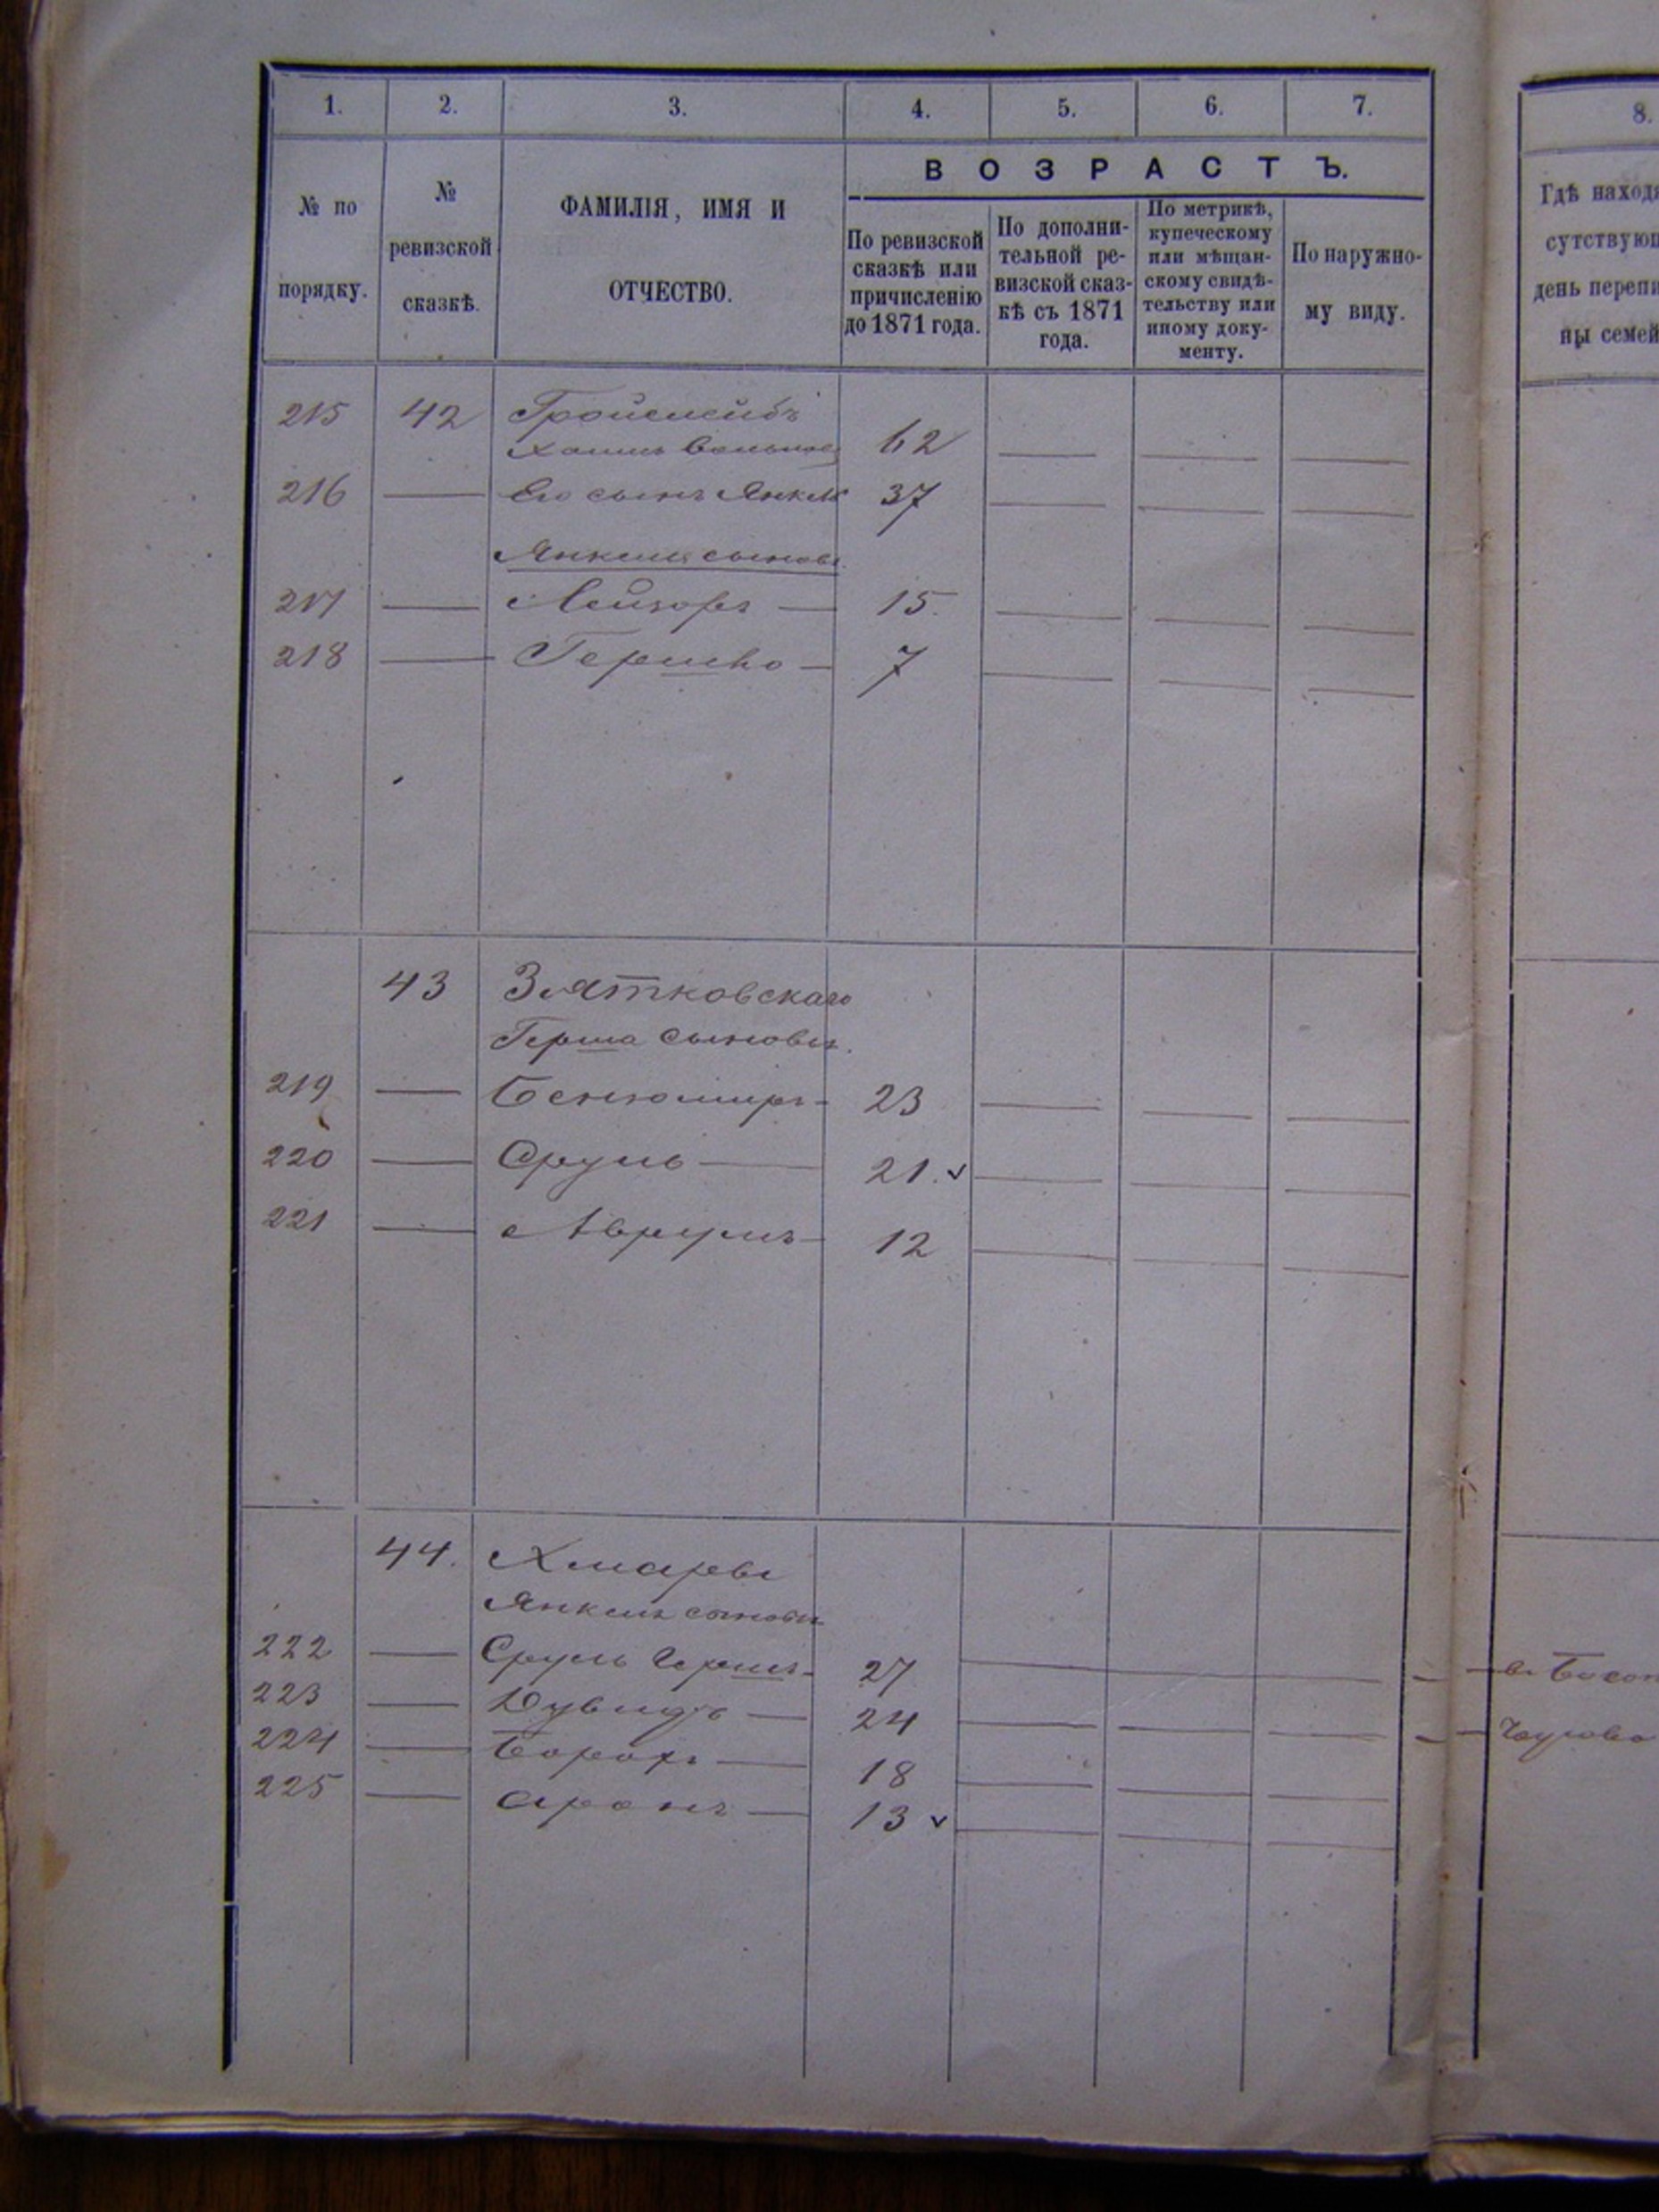 1. 2. 3. 4. 5. 6. 7. 8.
ВОЗРАСТЪ.
№ по порядку.
№ ревизской сказкѣ.
ФАМИЛІЯ, ИМЯ И ОТЧЕСТВО.
По ревизской сказкѣ или причисленію до 1871 года.
По дополнительной ревизской сказкѣ съ 1871 года.
По метрикѣ, купеческому или мѣщанскому свидѣтельству или иному документу.
По наружному виду.
Гдѣ наход
сутствую
день переп
ны семей
215 42 Гройслейбъ
Хаимъ 62
216 — Его сынъ Янкель 37 — — —
Янкеля сыновья
217 — Лейзоръ — 15. — — —
218 — Гершко — 7 — — —
43 Зятковскаго
Герша сыновья.
219 — Бенюминъ — 23 — — —
220 — Сруль — 21. — — —
221 — Аврумъ — 12 — — —
44. Хмаревы
Янкеля сыновья
222 — Сруль Гершъ — 27
223 — Дувидъ — 24 — — —
224 — Борохъ — 18 — — —
225 — Аронъ — 13 — — —